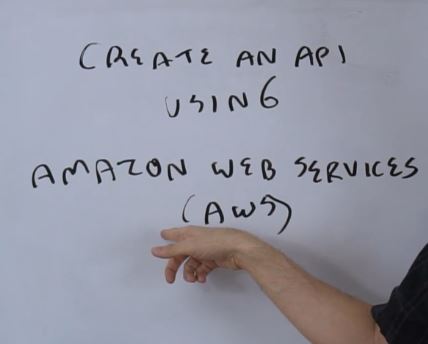 CREATE AN API
USING
AMAZON WEB SERVICES
(AWS)